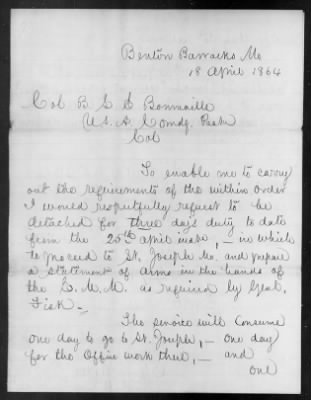 Benton Barracks Mo
18 April 1864
Col B L E Bonneville
U.S.A. Comdg. Post
Col
To enable me to carry
out the requirements of the within order
I would respectfully request to be
detached for three days duty to date
from the 20th April inst, — in which
to proceed to St. Joseph Mo. and prepare
a statement of arms in the hands of
the E. M. M. as required by Genl.
Fisk —
The service will consume
one day to go to St. Joseph, — one day
for the office work there, — and
one